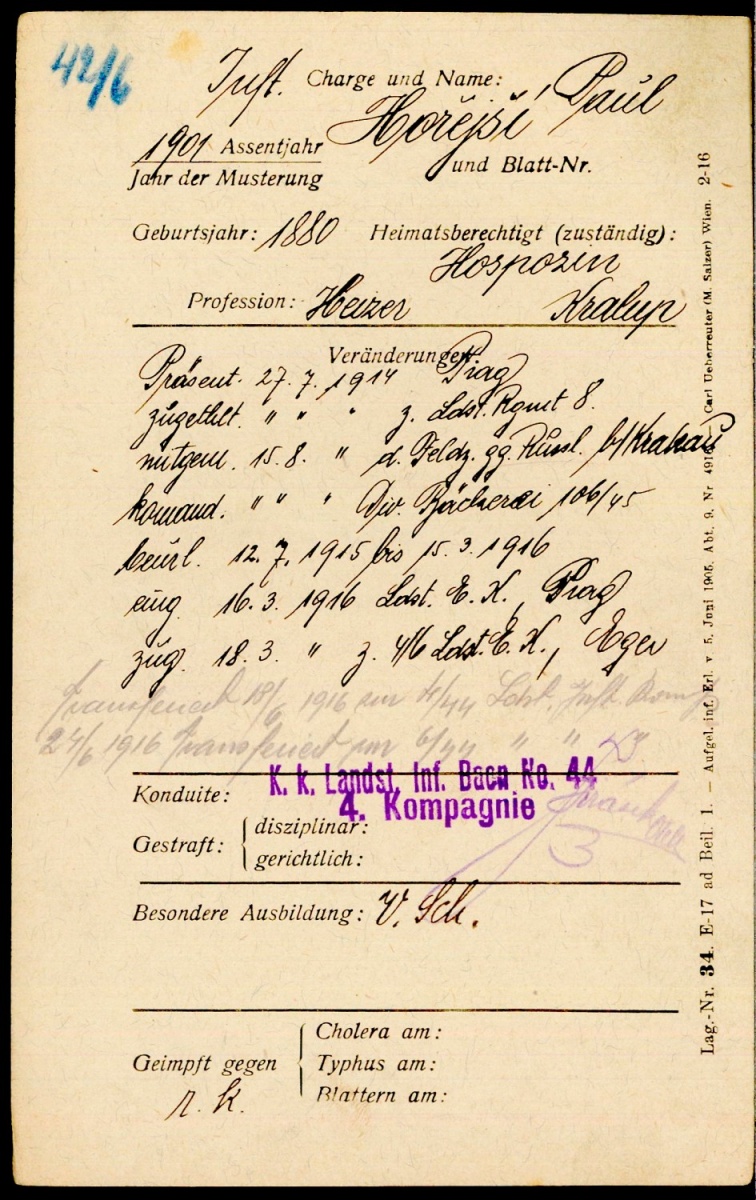 42/6
Inft. Charge und Name:
Hořejší Paul
1901 Assentjahr
Jahr der Musterung
und Blatt-Nr.
Geburtsjahr: 1880 Heimatsberechtigt (zuständig):
Hospozin
Profession: Heizer Kralup
Veränderungen:
Präsent. 27. 7. 1914 Prag
zugetheilt. " " " z. Ldst. Rgmt 8.
mitgem. 15. 8. " d. Feldz. gg. Russl. b/Krakau
komand. " " " Div. Bäckerei 106/45
beurl. 12. 7. 1915 bis 15. 3. 1916
eing. 16. 3. 1916 Ldst. E. K., Prag
zug. 18. 3. " z. 4/6 Ldst. E. K., Eger
Transferiert 18/6 1916 zur 4/44 Ldst. Inft. Komp
24/6 1916 Transferiert zur 6/44 " " "
K. k. Landst. Inf. Baon No. 44
4. Kompagnie
Konduite:
Gestraft: disziplinar:
gerichtlich:
3
Besondere Ausbildung: V. Sch.
Geimpft gegen
Cholera am:
Typhus am:
Blattern am:
r. k.
Lag.-Nr. 34. E-17 ad Beil. 1. — Aufgel. inf. Erl. v. 5. Juni 1905, Abt. 9, Nr. — Carl Ueberreuter (M. Salzer) Wien. 2-16